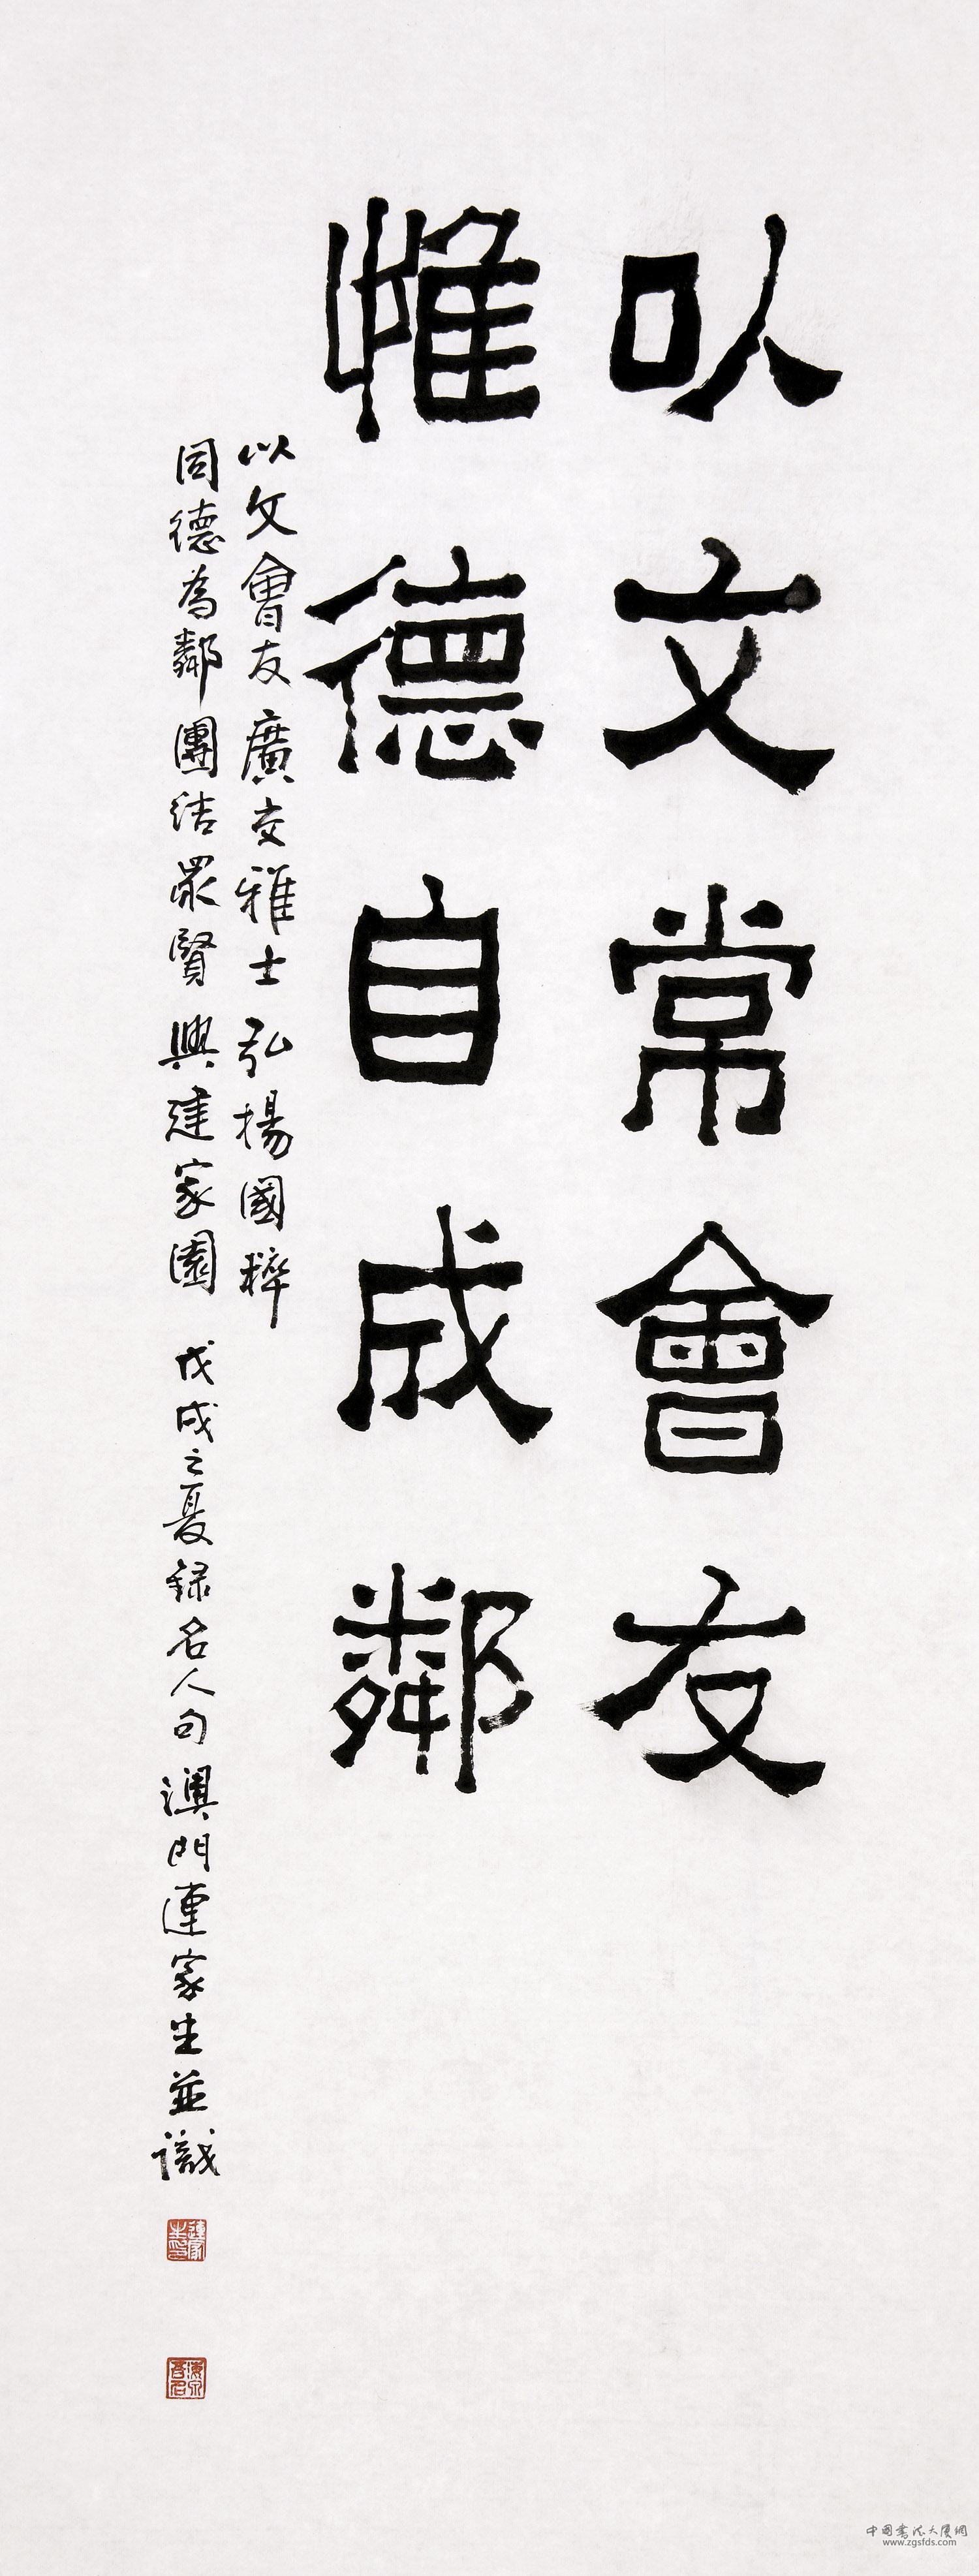 以文常會友
惟德自成鄰
以文會友廣交雅士弘揚國粹
同德為鄰團結眾賢興建家園 戊戌之夏錄名人句澳門連家生並識
連家生印
中国書法大厦網
www.zgsfds.com